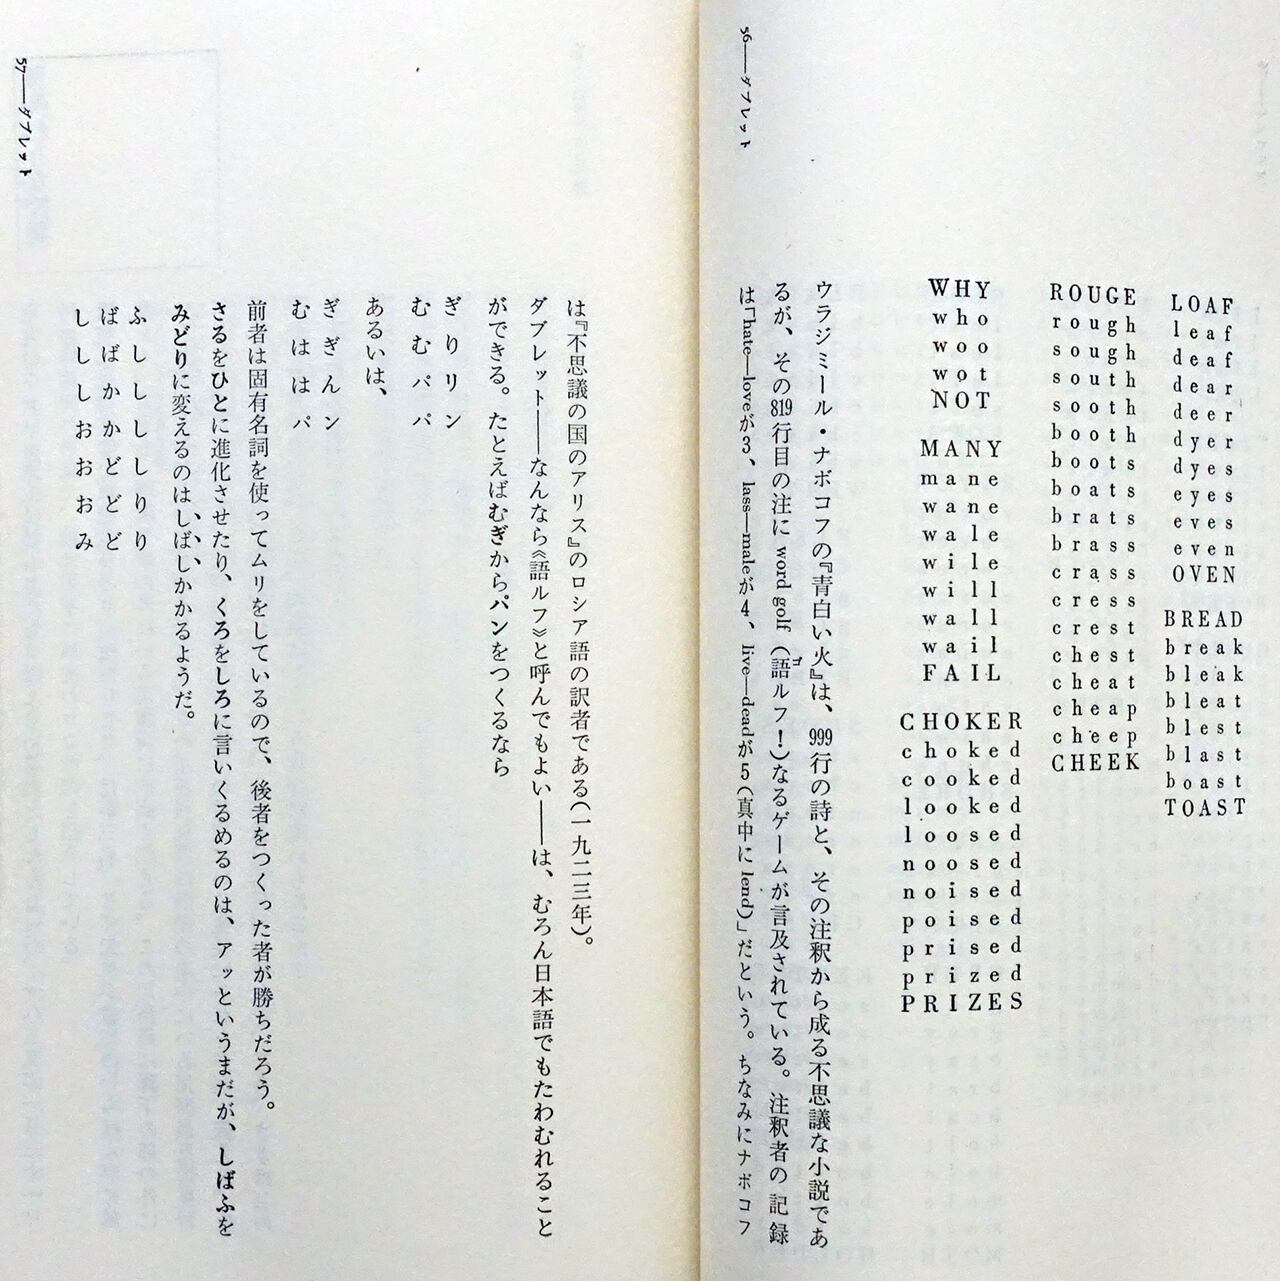 LOAF
leaf
deaf
dear
deer
dyer
dyes
eyes
eves
even
OVEN
BREAD
break
bleak
bleat
blest
blast
boast
TOAST
ROUGE
rough
sough
south
sooth
booth
boots
boats
brats
brass
crass
cress
crest
chest
cheat
cheap
cheep
CHEEK
WHY
who
woo
wot
NOT
MANY
mane
wane
wale
wile
will
wall
wail
FAIL
CHOKER
choked
cooked
looked
loosed
noosed
noised
poised
prised
prized
PRIZES
ウラジミール・ナボコフの『青白い火』は、999行の詩と、その注釈から成る不思議な小説であ
るが、その819行目の注に word golf（語ルフ！）なるゲームが言及されている。注釈者の記録
は「hate—loveが3、lass—maleが4、live—deadが5（真中にlend）」だという。ちなみにナボコフ
56——ダブレット
は『不思議の国のアリス』のロシア語の訳者である（一九二三年）。
ダブレット——なんなら《語ルフ》と呼んでもよい——は、むろん日本語でもたわむれること
ができる。たとえばむぎからパンをつくるなら
ぎりリン
むむパパ
あるいは、
ぎぎんン
むははパ
前者は固有名詞を使ってムリをしているので、後者をつくった者が勝ちだろう。
さるをひとに進化させたり、くろをしろに言いくるめるのは、アッというまだが、しばふを
みどりに変えるのは、しばしかかるようだ。
ふししししりり
ばばかかどどど
しししおおおみ
57——ダブレット